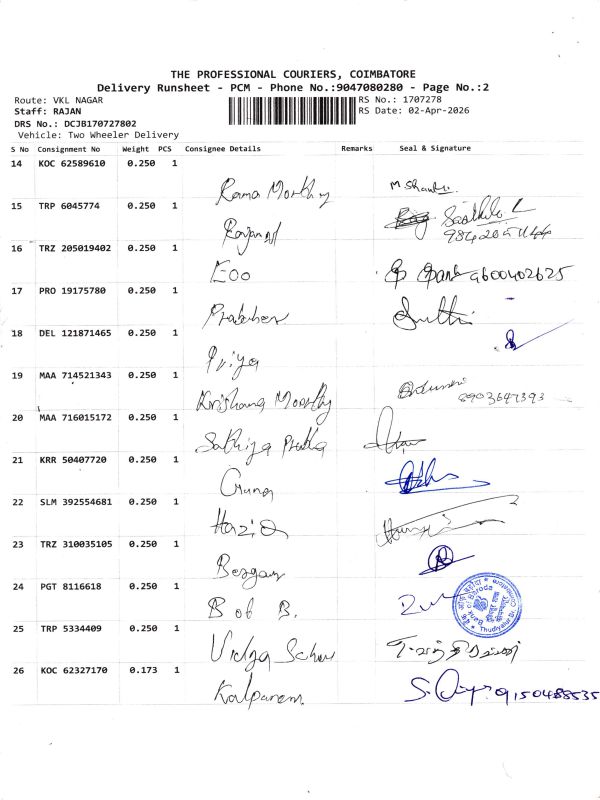 THE PROFESSIONAL COURIERS, COIMBATORE
Delivery Runsheet - PCM - Phone No.:9047080280 - Page No.:2
Route: VKL NAGAR
RS No.: 1707278
Staff: RAJAN
RS Date: 02-Apr-2026
DRS No.: DCJB170727802
Vehicle: Two Wheeler Delivery
S No Consignment No Weight PCS Consignee Details Remarks Seal & Signature
14 KOC 62589610 0.250 1
Rama Moorthy M. Shanthi
15 TRP 6045774 0.250 1
16 TRZ 205019402 0.250 1
Eoo 9600402625
17 PRO 19175780 0.250 1
18 DEL 121871465 0.250 1
Priya
19 MAA 714521343 0.250 1
Krishana Moorthy 8903647393
20 MAA 716015172 0.250 1
Sathiya Prabha
21 KRR 50407720 0.250 1
Oruna
22 SLM 392554681 0.250 1
23 TRZ 310035105 0.250 1
24 PGT 8116618 0.250 1
B of B.
Bank of Baroda
Thudiyalur Br.
25 TRP 5334409 0.250 1
Vidya
26 KOC 62327170 0.173 1
9150488535